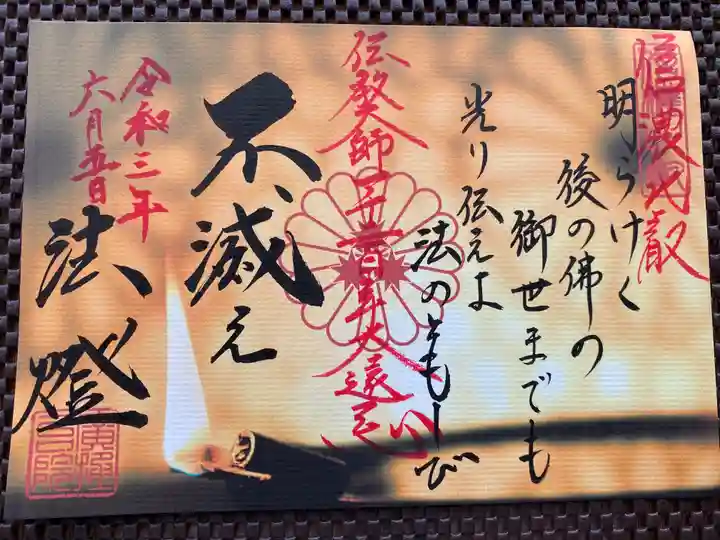 信濃比叡
明らけく
後の佛の
御世までも
光り伝えよ
法のともしび
伝教大師一千二百年大遠忌
不滅え
法燈
令和三年
六月五日